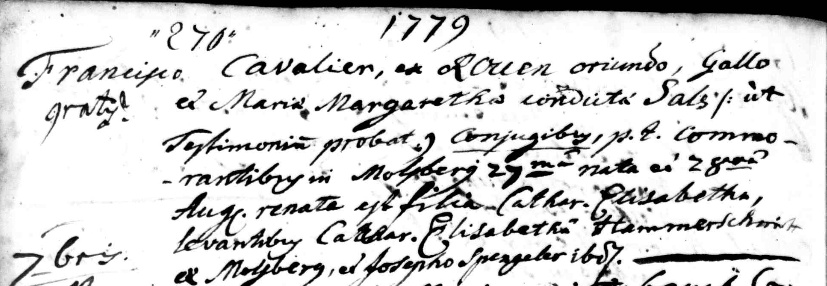 "270" 1779
Francisco Cavalier, ex ROUEN oriundo, Gallo
gratis. et Maria Margaretha condicta Sals /: ut
Testimoniū probat :) Conjugibus, p. t. commo-
-rantibus in Molsberg 27mâ nata et 28vâ
Aug. renata est filia Cathar. Elisabetha,
levantibus Cathar. Elisabethâ Hammerschmitt
7bris. ex Molsberg, et Josepho Spengeler ibid.